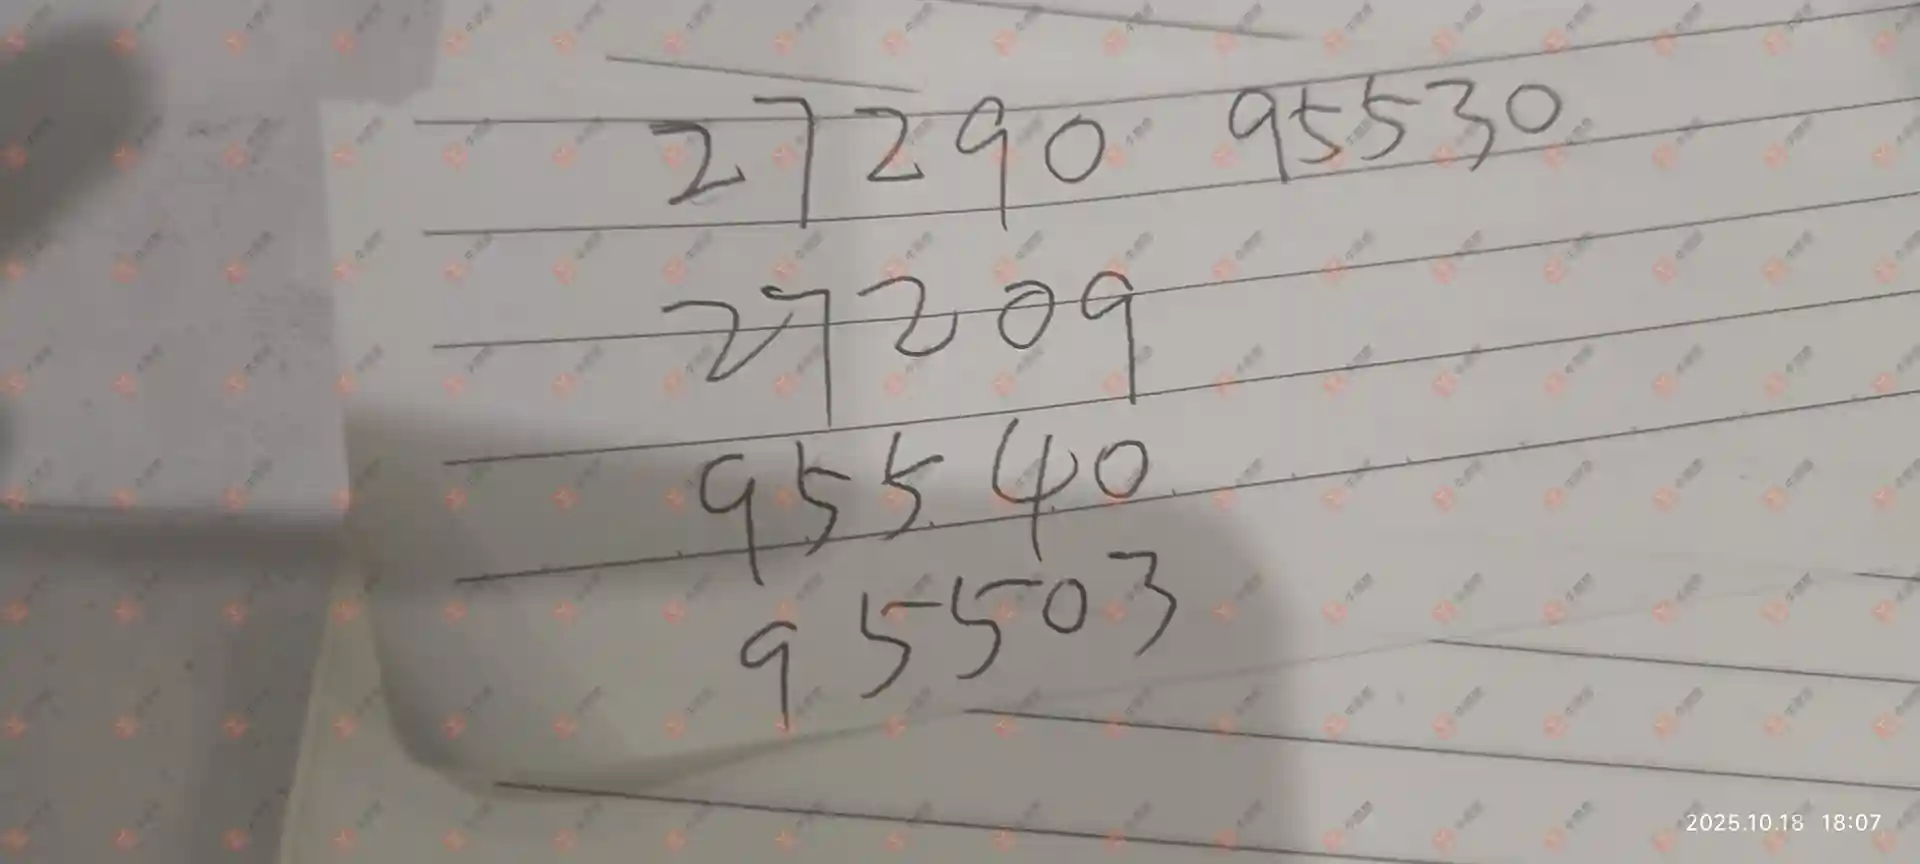 27290 95530
27209
95540
95503
2025.10.18 18:07